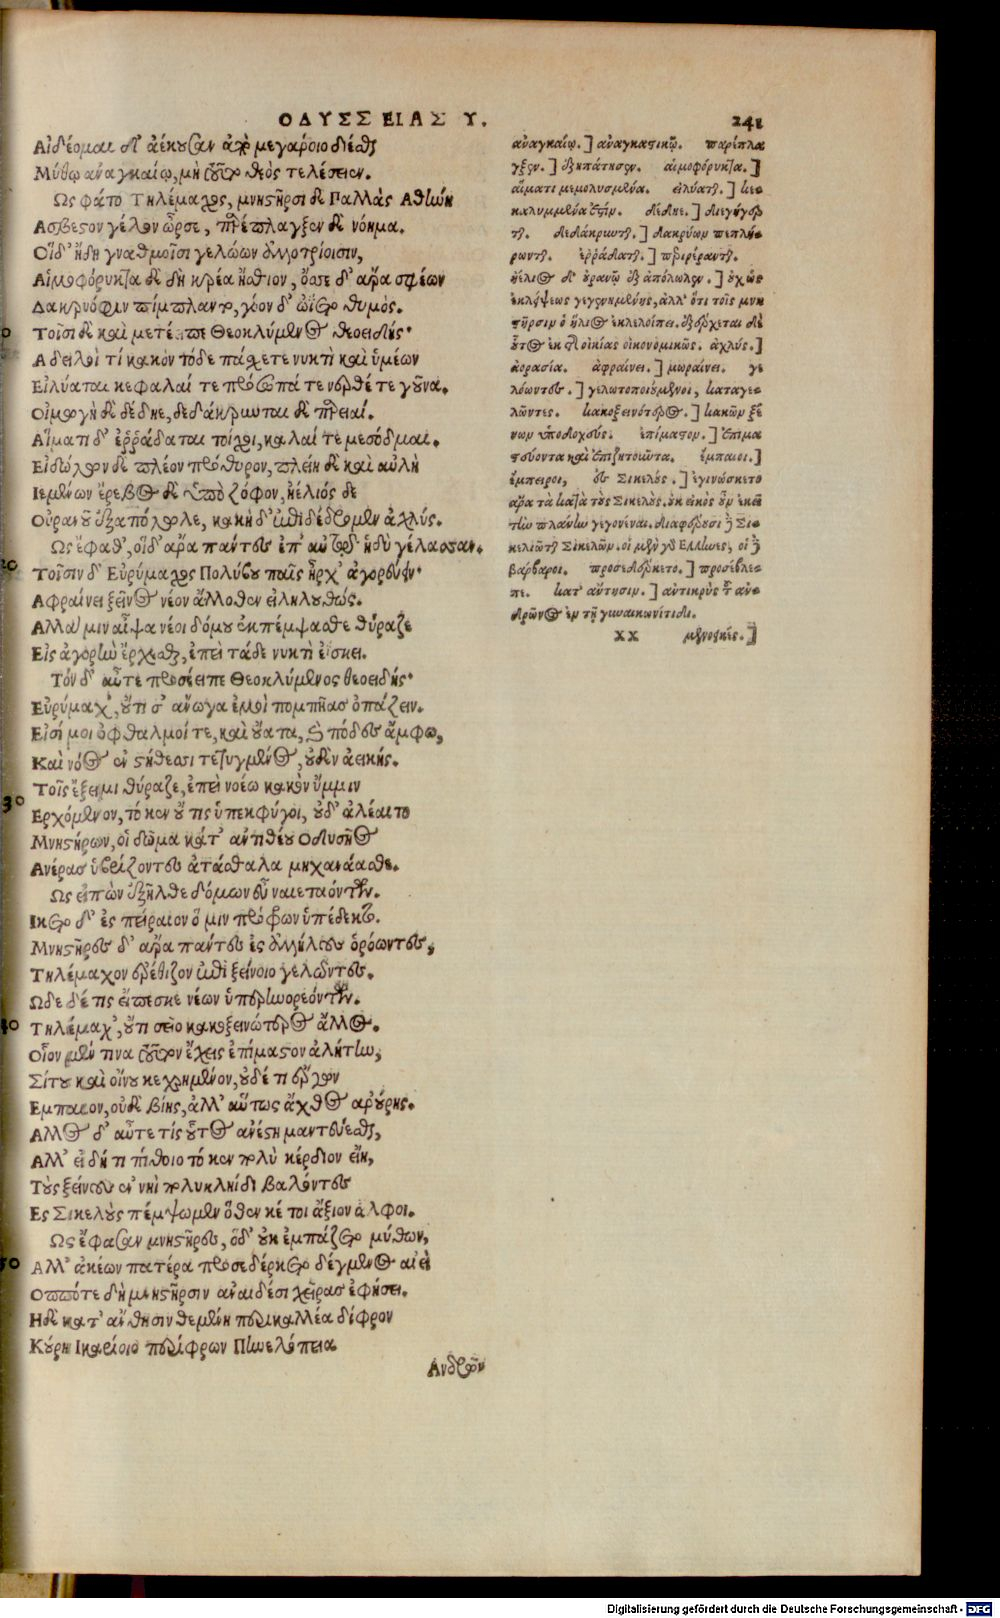 ΟΔΥΣΣΕΙΑΣ Υ. 241
Αἰδέομαι δ' ἀέκουσαν ἀπὸ μεγάροιο δίεσθαι
Μύθῳ ἀναγκαίῳ, μὴ τοῦτο θεὸς τελέσειεν.
Ὣς φάτο Τηλέμαχος, μνηστῆρσι δὲ Παλλὰς Αθήνη
Ασβεστον γέλον ὦρσε, παρέπλαγξεν δὲ νόημα.
Οἱ δ' ἤδη γναθμοῖσι γελώων ἀλλοτρίοισιν,
Αἱμοφόρυκτα δὲ δὴ κρέα ἤσθιον, ὄσσε δ' ἄρα σφέων
Δακρυόφιν πίμπλαντο, γόον δ' ὠΐετο θυμός.
Τοῖσι δὲ καὶ μετέειπε Θεοκλύμενος θεοειδής·
Α δειλοὶ τί κακὸν τόδε πάσχετε νυκτὶ καὶ ὑμέων
Εἰλύαται κεφαλαί τε πρόσωπά τε νέρθέ τε γοῦνα.
Οἰμωγὴ δὲ δέδηε, δεδάκρυνται δὲ παρειαί.
Αἵματι δ' ἐῤῥάδαται τοῖχοι, καλαί τε μεσόδμαι.
Εἰδώλων δὲ πλέον πρόθυρον, πλείη δὲ καὶ αὐλὴ
Ιεμένων ἔρεβος δὲ ὑπὸ ζόφον, ἠέλιός δε
Οὐρανοῦ ἐξαπόλωλε, κακὴ δ' ἐπιδέδρομεν ἀχλύς.
Ὣς ἔφαθ', οἱ δ' ἄρα πάντες ἐπ' αὐτῷ ἡδὺ γέλασσαν.
Τοῖσιν δ' Εὐρύμαχος Πολύβου παῖς ἦρχ' ἀγορεύειν·
Αφραίνει ξεῖνος νέον ἄλλοθεν εἰληλουθώς.
Αλλά μιν αἶψα νέοι δόμου ἐκπέμψασθε θύραζε
Εἰς ἀγορὴν ἔρχεσθαι, ἐπεὶ τάδε νυκτὶ ἐΐσκει.
Τὸν δ' αὖτε προσέειπε Θεοκλύμενος θεοειδής·
Εὐρύμαχ', οὔτι σ' ἄνωγα ἐμοὶ πομπῆας ὀπάζειν.
Εἰσί μοι ὀφθαλμοί τε, καὶ οὔατα, καὶ πόδες ἄμφω,
Καὶ νόος ἐν στήθεσσι τετυγμένος, οὐδὲν ἀεικής.
Τοῖς ἔξειμι θύραζε, ἐπεὶ νοέω κακὸν ὔμμιν
Ερχόμενον, τό κεν οὔ τις ὑπεκφύγοι, οὐδ' ἀλέαιτο
Μνηστήρων, οἳ δῶμα κάτ' ἀντιθέου Οδυσῆος
Ανέρας ὑβρίζοντες ἀτάσθαλα μηχανάασθε.
Ὣς εἰπὼν ἐξῆλθε δόμων εὖ ναιεταόντων.
Ικετο δ' ἐς πείραιον ὅ μιν πρόφρων ὑπέδεκτο.
Μνηστῆρες δ' ἄρα πάντες ἐς ἀλλήλους ὁρόωντες,
Τηλέμαχον ἐρέθιζον ἐπὶ ξείνοιο γελῶντες.
Ωδε δέ τις εἴπεσκε νέων ὑπερηνορεόντων.
Τηλέμαχ', οὔτι σεῖο κακοξεινώτερος ἄλλος.
Οἷον μέν τινα τοῦτον ἔχεις ἐπίμαστον ἀλήτην,
Σίτου καὶ οἴνου κεχρημένον, οὐδέ τι ἔργων
Εμπαιον, οὐδὲ βίης, ἀλλ' αὔτως ἄχθος ἀρούρης.
Αλλος δ' αὖτέ τις οὗτος ἀνέστη μαντεύεσθαι,
Αλλ' εἰ δή τι πίθοιο τό κεν πολὺ κέρδιον εἴη,
Τοὺς ξείνους ἐν νηῒ πολυκληίδι βαλόντες
Ες Σικελοὺς πέμψωμεν ὅθεν κέ τοι ἄξιον ἄλφοι.
Ὣς ἔφασαν μνηστῆρες, ὁ δ' οὐκ ἐμπάζετο μύθων,
Αλλ' ἀκέων πατέρα προσεδέρκετο δέγμενος αἰεὶ
Οππότε δὴ μνηστῆρσιν ἀναιδέσι χεῖρας ἐφήσει.
Η δὲ κατ' ἄντησιν θεμένη περικαλλέα δίφρον
Κούρη Ικαρίοιο περίφρων Πηνελόπεια
Ανδρῶν
ἀναγκαίῳ.] ἀναγκαστικῷ. παρέπλα
γξεν.] ἐξηπάτησεν. αἱμοφόρυκτα.]
αἵματι μεμολυσμένα. εἰλύαται.] κε-
καλυμμένα ἐστίν. δέδηε.] διεγήγερ
ται. δεδάκρυνται.] δακρύων πεπλή-
ρωνται. ἐρράδαται.] περιρέρανται.
ἠέλιος δ' οὐρανοῦ ἐξαπόλωλεν.] οὐχ ὡς
ἐκλήψεως γεγενημένης, ἀλλ' ὅτι τοῖς μνη
στῆρσιν ὁ ἥλιος ἐκλελοίπει. ἐξέρχεται δὲ
οὗτος ἐκ τῆς οἰκίας οἰκονομικῶς. ἀχλύς.]
ἀορασία. ἀφραίνει.] μωραίνει. γε
λόωντες.] γελωτοποιούμενοι, καταγε-
λῶντες. κακοξεινότερος.] κακῶν ξέ
νων ὑποδοχεύς. ἐπίμαστον.] ἐπιμα
στεύοντα καὶ ἐπιζητοῦντα. ἔμπαιοι.]
ἔμπειροι, ἐς Σικελούς.] ἐγινώσκετο
ἄρα τὰ κατὰ τοὺς Σικελούς. οὐκ εἰκὸς οὖν ἐκεῖ
τὴν πλάνην γεγονέναι. διαφέρουσι δὲ Σι-
κελιῶται Σικελῶν. οἱ μὲν γὰρ Ελληνες, οἱ δὲ
βάρβαροι. προσεδέρκετο.] προσέβλε-
πε. κατ' ἄντησιν.] ἀντικρὺς τ ἀν-
δρῶνος ἐν τῇ γυναικωνίτιδι.
ΧΧ
20
30
40
50
Digitalisierung gefördert durch die Deutsche Forschungsgemeinschaft - DFG